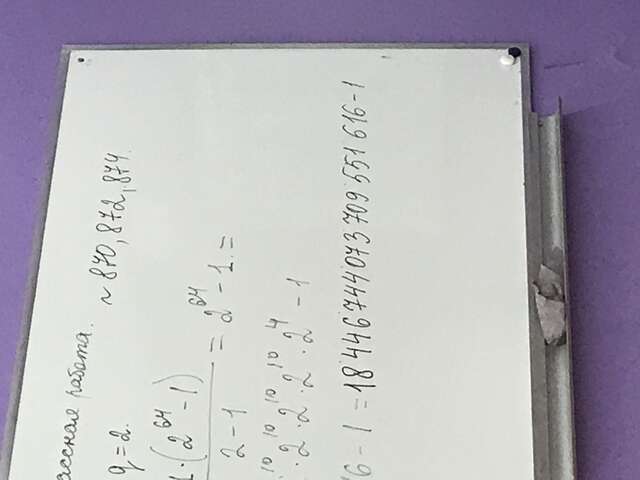 ассная работа.
~ 870, 872, 874.
q = 2.
1·(2⁶⁴ - 1)
2 - 1
= 2⁶⁴ - 1. =
¹⁰ · 2¹⁰ · 2¹⁰ · 2¹⁰ · 2⁴ - 1
6 - 1 = 18 446 744 073 709 551 616 - 1